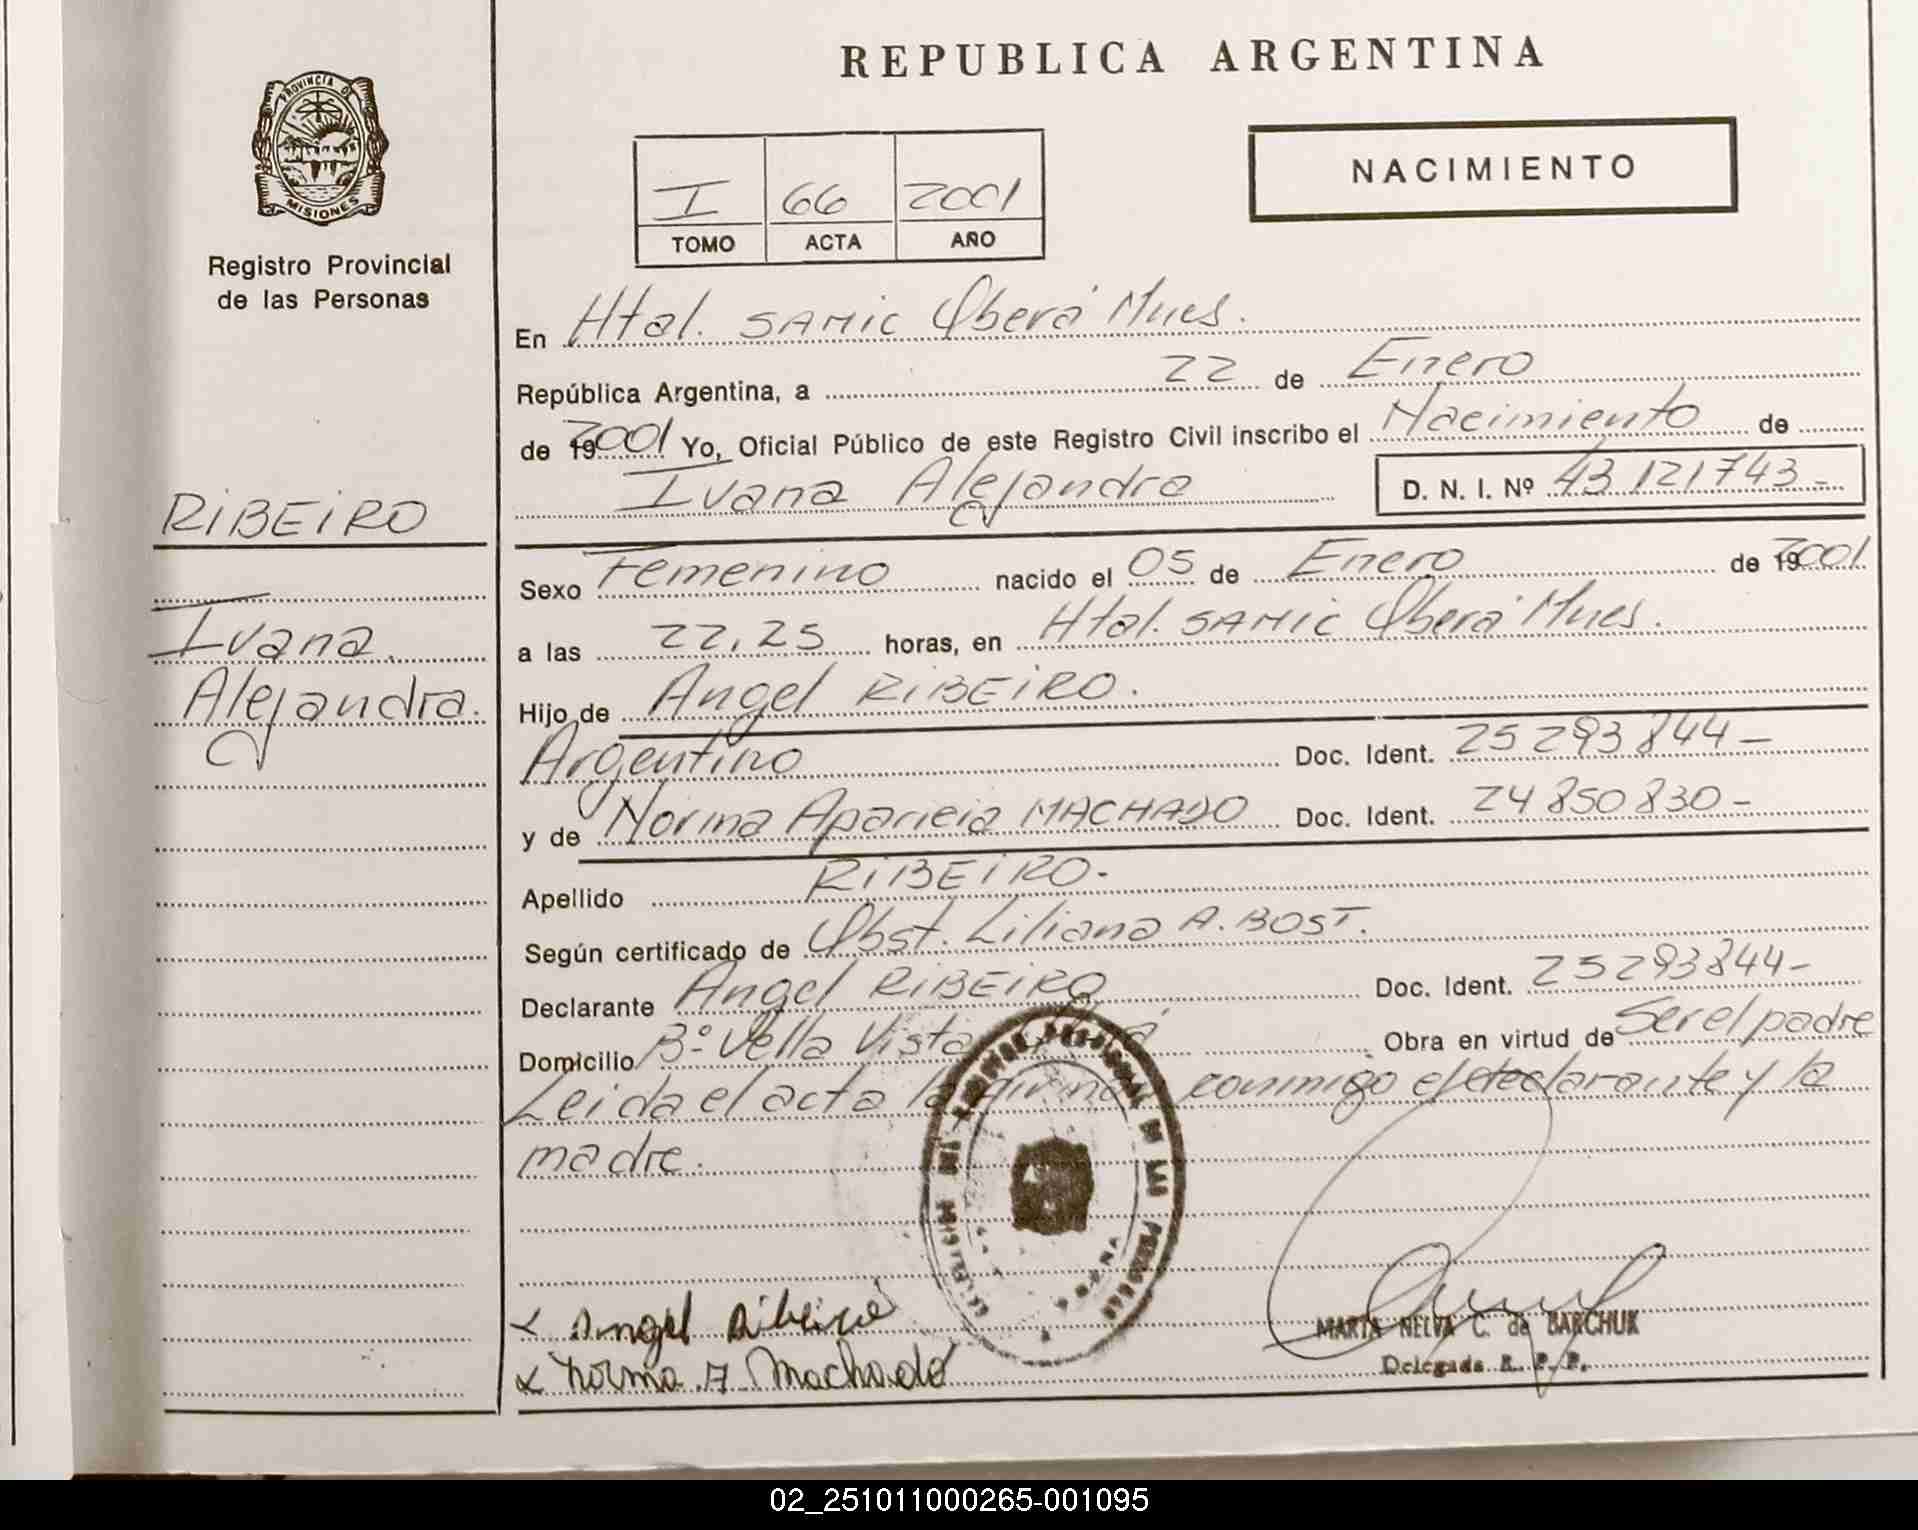 REPUBLICA ARGENTINA
PROVINCIA DE
MISIONES
Registro Provincial
de las Personas
I 66 2001
TOMO ACTA AÑO
NACIMIENTO
En Htal. SAMIC Oberá Mnes.
República Argentina, a 22 de Enero
de 2001 Yo, Oficial Público de este Registro Civil inscribo el Nacimiento de
Ivana Alejandra D. N. I. Nº 43.121743-
RIBEIRO
Ivana
Alejandra.
Sexo Femenino nacido el 05 de Enero de 2001
a las 22,25 horas, en Htal. SAMIC Oberá Mnes.
Hijo de Angel RIBEIRO.
Argentino Doc. Ident. 25293844-
y de Norma Aparicia MACHADO Doc. Ident. 24850830-
Apellido RIBEIRO.-
Según certificado de Obst. Liliana A. BOST.
Declarante Angel RIBEIRO Doc. Ident. 25293844-
Domicilio Bº Vella Vista Obra en virtud de Ser el padre
Leida el acta la conmigo el declarante y la
madre.
x Angel Ribeiro
x Norma A Machado
MARTA NELVA C. de BARCHUK
Delegada R. P. P.
02_251011000265-001095